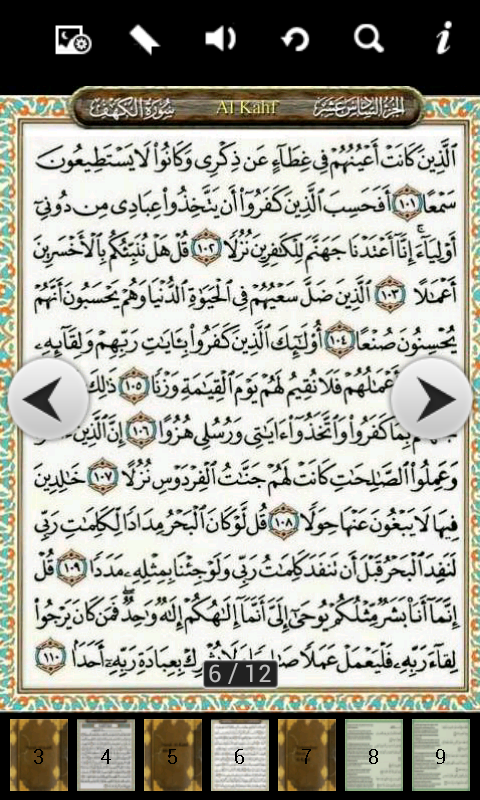 سورة الكهف Al Kahf الجزء السادس عشر
الَّذِينَ كَانَتْ أَعْيُنُهُمْ فِي غِطَآءٍ عَن ذِكْرِى وَكَانُوا۟ لَا يَسْتَطِيعُونَ
سَمْعًا ١٠١ أَفَحَسِبَ الَّذِينَ كَفَرُوٓا۟ أَن يَتَّخِذُوا۟ عِبَادِى مِن دُونِىٓ
أَوْلِيَآءَ ۚ إِنَّآ أَعْتَدْنَا جَهَنَّمَ لِلْكَٰفِرِينَ نُزُلًا ١٠٢ قُلْ هَلْ نُنَبِّئُكُم بِالْأَخْسَرِينَ
أَعْمَٰلًا ١٠٣ الَّذِينَ ضَلَّ سَعْيُهُمْ فِى الْحَيَوٰةِ الدُّنْيَا وَهُمْ يَحْسَبُونَ أَنَّهُمْ
يُحْسِنُونَ صُنْعًا ١٠٤ أُو۟لَٰٓئِكَ الَّذِينَ كَفَرُوا۟ بِـَٔايَٰتِ رَبِّهِمْ وَلِقَآئِهِۦ
أَعْمَٰلُهُمْ فَلَا نُقِيمُ لَهُمْ يَوْمَ الْقِيَٰمَةِ وَزْنًا ١٠٥ ذَٰلِكَ
بِمَا كَفَرُوا۟ وَاتَّخَذُوٓا۟ ءَايَٰتِى وَرُسُلِى هُزُوًا ١٠٦ إِنَّ الَّذِينَ
وَعَمِلُوا۟ الصَّٰلِحَٰتِ كَانَتْ لَهُمْ جَنَّٰتُ الْفِرْدَوْسِ نُزُلًا ١٠٧ خَٰلِدِينَ
فِيهَا لَا يَبْغُونَ عَنْهَا حِوَلًا ١٠٨ قُل لَّوْ كَانَ الْبَحْرُ مِدَادًا لِّكَلِمَٰتِ رَبِّى
لَنَفِدَ الْبَحْرُ قَبْلَ أَن تَنفَدَ كَلِمَٰتُ رَبِّى وَلَوْ جِئْنَا بِمِثْلِهِۦ مَدَدًا ١٠٩ قُلْ
إِنَّمَآ أَنَا۠ بَشَرٌ مِّثْلُكُمْ يُوحَىٰٓ إِلَىَّ أَنَّمَآ إِلَٰهُكُمْ إِلَٰهٌ وَٰحِدٌ ۖ فَمَن كَانَ يَرْجُوا۟
لِقَآءَ رَبِّهِۦ فَلْيَعْمَلْ عَمَلًا بِعِبَادَةِ رَبِّهِۦٓ أَحَدًۢا ١١٠
6 / 12
3 4 5 6 7 8 9